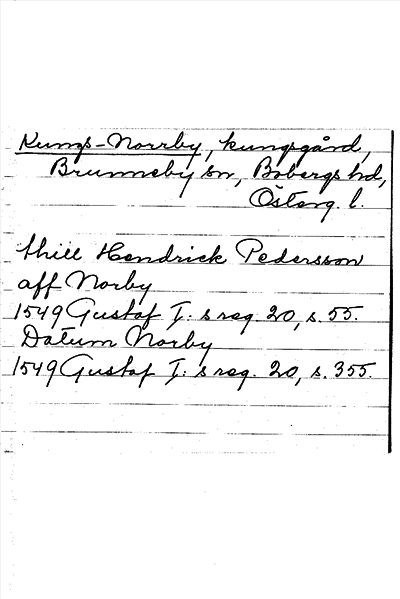 Kungs-Norrby, kungsgård,
Brunneby sn, Bobergs hd,
Österg. l.
thill Hendrick Pedersson
aff Norby
1549 Gustaf I:s reg. 20, s. 55.
Datum Norby
1549 Gustaf I:s reg. 20, s. 355.